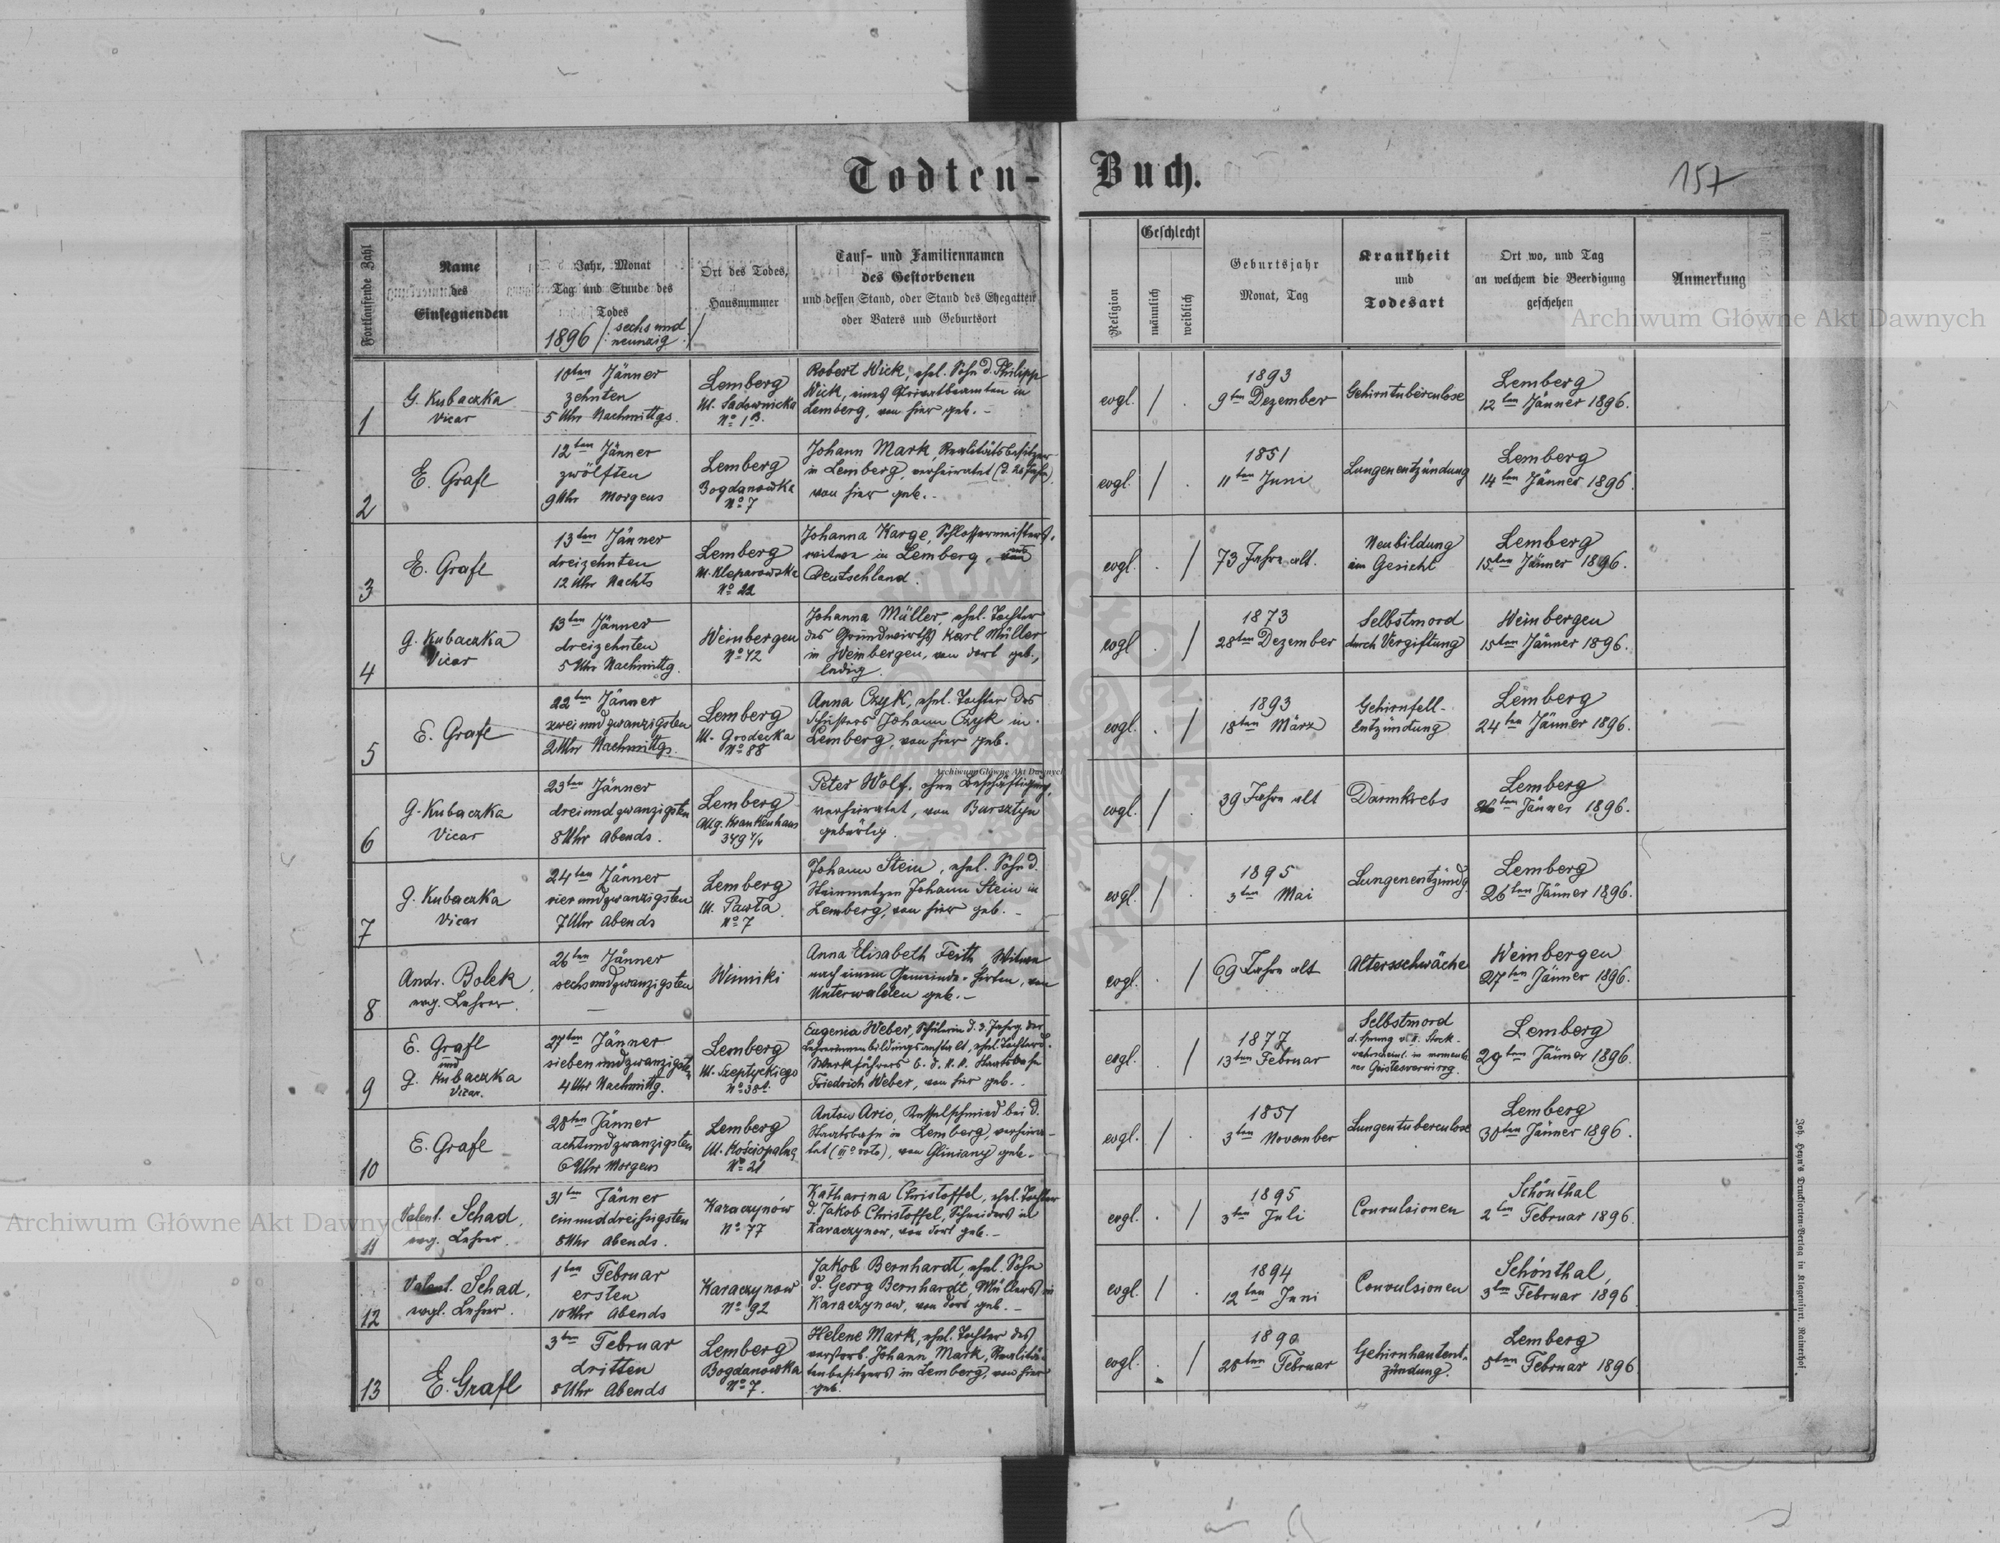 Todten-Buch.
157
Fortlaufende Zahl
Name
des
Einsegnenden
Jahr, Monat
Tag und Stunde des
Todes
1896 /: sechs und
neunzig :/
Ort des Todes,
Hausnummer
Tauf- und Familiennamen
des Gestorbenen
und dessen Stand, oder Stand des Ehegatten
oder Vaters und Geburtsort
Religion
Geschlecht
männlich
weiblich
Geburtsjahr
Monat, Tag
Krankheit
und
Todesart
Ort wo, und Tag
an welchem die Beerdigung
geschehen
Anmerkung
Archiwum Główne Akt Dawnych
1
G. Kubaczka
Vicar
10ten Jänner
zehnten
5 Uhr Nachmittgs.
Lemberg
Ul. Sadownicka
No 1B.
Robert Wick, ehel. Sohn d. Philipp
Wick, eines Privatbeamten in
Lemberg, von hier geb. -
evgl. / .
1893
9ten Dezember
Gehirntuberculose
Lemberg
12ten Jänner 1896.
2
E. Grafl
12ten Jänner
zwölften
9 Uhr Morgens
Lemberg
Bogdanowka
No 7
Johann Mark, Realitätsbesitzer
in Lemberg, verheiratet (d. 20 Jahre),
von hier geb. -
evgl. / .
1851
11ten Juni
Lungenentzündung
Lemberg
14ten Jänner 1896.
3
E. Grafl
13ten Jänner
dreizehnten
12 Uhr Nachts
Lemberg
Ul. Kleparowska
No 22
Johanna Karge, Schlossermeisters-
witwe in Lemberg, aus
Deutschland.
evgl. . /
73 Jahre alt.
Neubildung
im Gesicht
Lemberg
15ten Jänner 1896.
4
G. Kubaczka
Vicar
13ten Jänner
dreizehnten
5 Uhr Nachmittg.
Weinbergen
No 42
Johanna Müller, ehel. Tochter
des Grundwirths Karl Müller
in Weinbergen, von dort geb.,
ledig.
evgl . /
1873
28ten Dezember
Selbstmord
durch Vergiftung
Weinbergen
15ten Jänner 1896.
5
E. Grafl
22ten Jänner
zweiundzwanzigsten
2 Uhr Nachmittgs.
Lemberg
Ul. Grodecka
No 88
Anna Czyk, ehel. Tochter des
Schusters Johann Czyk in
Lemberg, von hier geb.
evgl. . /
1893
18ten März
Gehirnfell-
Entzündung
Lemberg
24ten Jänner 1896.
6
G. Kubaczka
Vicar
23ten Jänner
dreiundzwanzigsten
8 Uhr Abends.
Lemberg
Allg. Krankenhaus
349 4/4
Peter Wolf, ohne Beschäftigung,
verheiratet, von Barsztyn
gebürtig.
evgl. / .
39 Jahre alt
Darmkrebs
Lemberg
26ten Jänner 1896.
7
G. Kubaczka
Vicar
24ten Jänner
vierundzwanzigsten
7 Uhr Abends
Lemberg
Ul. Pawła
No 7
Johann Stein, ehel. Sohn d.
Steinmetzen Johann Stein in
Lemberg, von hier geb. -
evgl. / .
1895
3ten Mai
Lungenentzündg.
Lemberg
26ten Jänner 1896.
8
Andr. Bolek,
evg. Lehrer.
26ten Jänner
sechsundzwanzigsten
—
Winniki
Anna Elisabeth Feith, Witwe
nach einem Gemeinde-Hirten, von
Unterwalden geb. -
evgl. . /
69 Jahre alt
Altersschwäche
Weinbergen
27ten Jänner 1896.
9
E. Grafl
und
G. Kubaczka
Vicar.
27ten Jänner
siebenundzwanzigsten
4 Uhr Nachmittg.
Lemberg
Ul. Szeptyckiego
Eugenia Weber, Schülerin d. 3. Jahrg. der
Lehrerinnenbildungsanstalt, ehel. Tochter d.
Werkführers b. d. K. K. Staatsbahn
Friedrich Weber, von hier geb. -
evgl. . /
1877
13ten Februar
Selbstmord
d. Sprung v. II. Stock-
wahrscheinl. in momenta-
ner Geistesverwirrg.
Lemberg
29ten Jänner 1896.
10
E. Grafl
28ten Jänner
achtundzwanzigsten
6 Uhr Morgens
Lemberg
Ul. Kościopalna
No 21
Anton Ario, Kesselschmied bei d.
Staatsbahn in Lemberg, verheira-
tet (IIo voto), von Gliniany geb. -
evgl. / .
1851
3ten November
Lungentuberculose
Lemberg
30ten Jänner 1896.
11
Valent. Schad,
evg. Lehrer.
31ten Jänner
einunddreissigsten
8 Uhr Abends.
Karaczynów
No 77
Katharina Christoffel, ehel. Tochter
d. Jakob Christoffel, Schneiders in
Karaczynow, von dort geb. -
evgl. . /
1895
3ten Juli
Convulsionen
Schönthal
2ten Februar 1896.
12
Valent. Schad,
evgl. Lehrer.
1ten Februar
ersten
10 Uhr Abends
Karaczynow
No 92
Jakob Bernhardt, ehel. Sohn
d. Georg Bernhardt, Müllers in
Karaczynow, von dort geb. -
evgl. / .
1894
12ten Juni
Convulsionen
Schönthal,
3ten Februar 1896.
13
E. Grafl
3ten Februar
dritten
8 Uhr Abends
Lemberg
Bogdanowka
No 7.
Helene Mark, ehel. Tochter des
verstorb. Johann Mark, Realitä-
tenbesitzers in Lemberg, von hier
geb.
evgl. . /
1890
25ten Februar
Gehirnhautent-
zündung.
Lemberg
5ten Februar 1896
Joh. Heyn's Drucksorten-Verlag in Klagenfurt, Rainerhof.
Archiwum Główne Akt Dawnych
Archiwum Główne Akt Dawnych